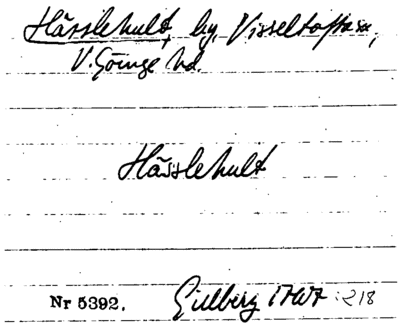 Hässlehult, by, Visseltofta sn,
V. Göinge hd.
Hässlehult
Nr 5392. Gillberg 1767 : 218